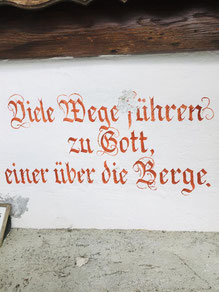 Viele Wege führen
zu Gott,
einer über die Berge.